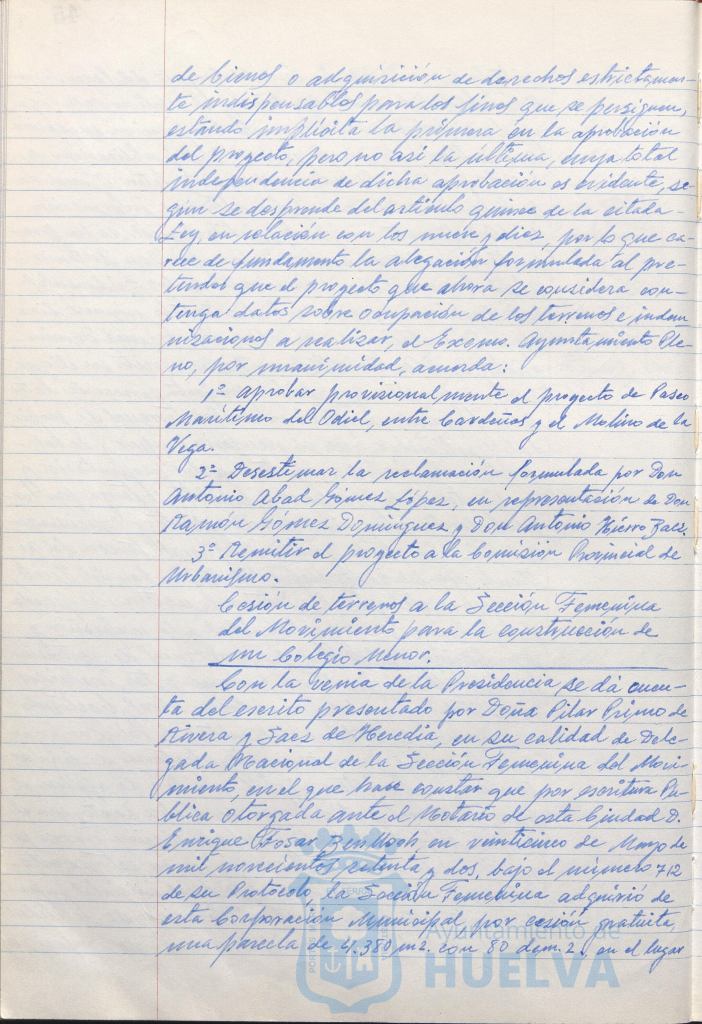 de bienes o adquisición de derechos estrictamen-
te indispensables para los fines que se persiguen,
estando implícita la primera en la aprobación
del proyecto, pero no así la última, cuya total
independencia de dicha aprobación es evidente, se-
gún se desprende del artículo quince de la citada
Ley, en relación con los nueve y diez, por lo que ca-
rece de fundamento la alegación formulada al pre-
tender que el proyecto que ahora se considera con-
tenga datos sobre ocupación de los terrenos e indem-
nizaciones a realizar, el Excmo. Ayuntamiento Ple-
no, por unanimidad, acuerda:
1º Aprobar provisionalmente el proyecto de Paseo
Marítimo del Odiel, entre Cardeñas y el Molino de la
Vega.
2º Desestimar la reclamación formulada por Don
Antonio Abad Gómez López, en representación de Don
Ramón Gómez Domínguez y Don Antonio Hierro Baez.
3º Remitir el proyecto a la Comisión Provincial de
Urbanismo.
Cesión de terrenos a la Sección Femenina
del Movimiento para la construcción de
un Colegio Menor.
Con la venia de la Presidencia, se dá cuen-
ta del escrito presentado por Doña Pilar Primo de
Rivera y Saez de Heredia, en su calidad de Dele-
gada Nacional de la Sección Femenina del Movi-
miento, en el que hace constar que por escritura Pú-
blica otorgada ante el Notario de esta Ciudad D.
Enrique Fosar Benlloch en veinticinco de Marzo de
mil novecientos setenta y dos, bajo el número 712
de su Protocolo, la Sección Femenina adquirió de
esta Corporación Municipal por cesión gratuita,
una parcela de 4.380 m2. con 80 dcm.2., en el lugar
Ayuntamiento de
HUELVA